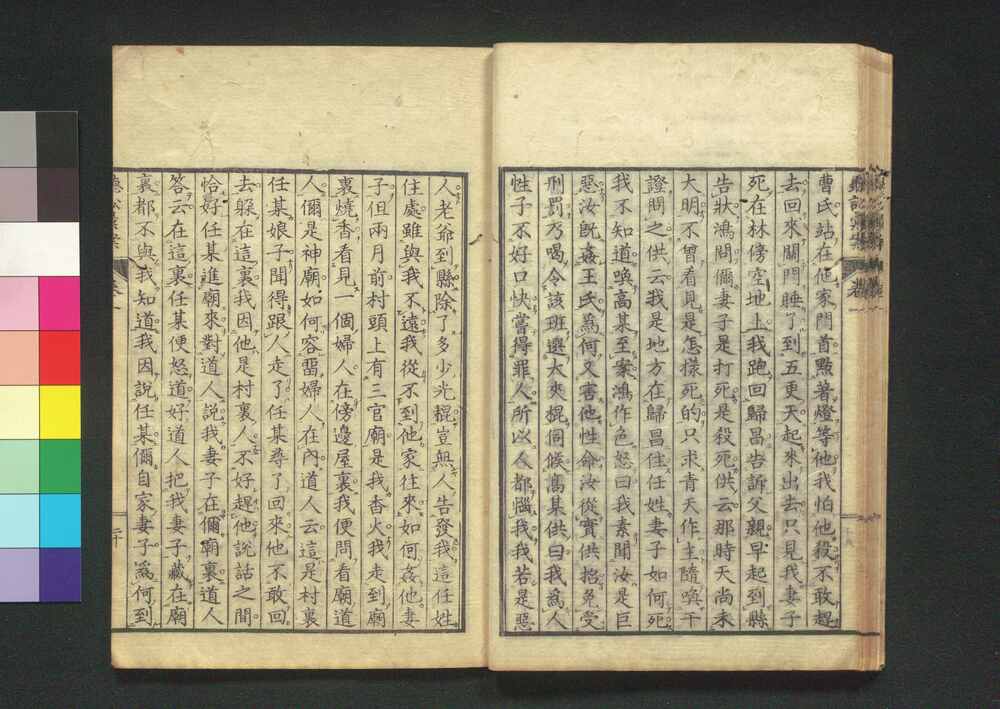 曹氏站在他家門首點著燈等他我怕他殺不敢趕
去回來關門睡了到五更天起來出去只見我妻子
死在林傍空地上我跑回歸昌告訴父親早起到縣
告狀鴻問儞妻子是打死是殺死供云那時天尚未
大明不曾看見是怎樣死的只求青天作主隨喚干
證問之供云我是地方在歸昌住任姓妻子如何死
我不知道喚高某至案鴻作色怒曰我素聞汝是巨
惡汝既姦王氏為何又害他性命汝從實供招免受
刑罰乃喝令該班選大夾棍伺候高某供曰我為人
性子不好口快嘗得罪人所以人都惱我我若是惡
人老爺到縣除了多少光棍豈無人告發我這任姓
住處雖與我不遠我從不到他家往來如何姦他妻
子但兩月前村頭上有三官廟是我香火我走到廟
裏燒香看見一個婦人在傍邊屋裏我便問看廟道
人儞是神廟如何容畱婦人在內道人云這是村裏
任某娘子聞得跟人走了任某尋了回來他不敢回
去躲在這裏我因他是村裏人不好趕他說話之間
恰好任某進廟來對道人說我妻子在儞廟裏道人
答云在這裏任某便怒道好道人把我妻子藏在廟
裏都不與我知道我因說任某儞自家妻子為何到
二十